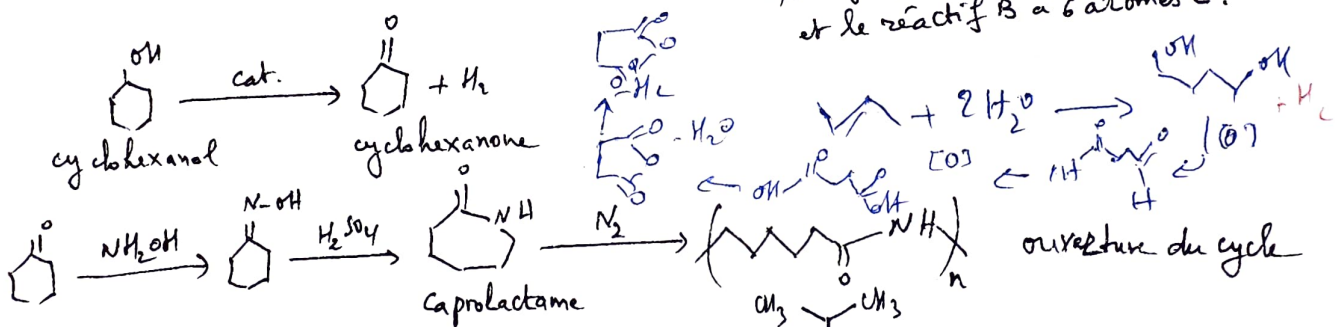 et le réactif B a 6 atomes C.
OH
cat.
O
+ H2
cyclohexanol
cyclohexanone
- H2O
+ 2 H2O
OH
OH
[O]
[O]
O
NH2OH
N-OH
H2SO4
O
NH
caprolactame
N2
NH
O
n
ouverture du cycle
CH3
CH3